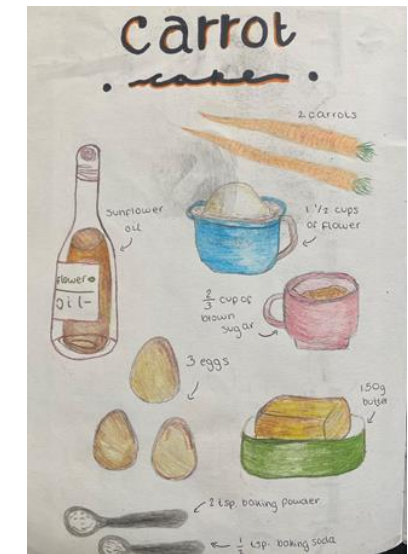 carrot
cake
2 carrots
sunflower
oil
1 1/2 cups
of flower
flower
oil-
2/3 cup of
brown
sugar
3 eggs
150g
butter
2 tsp. baking powder
1/2 tsp. baking soda